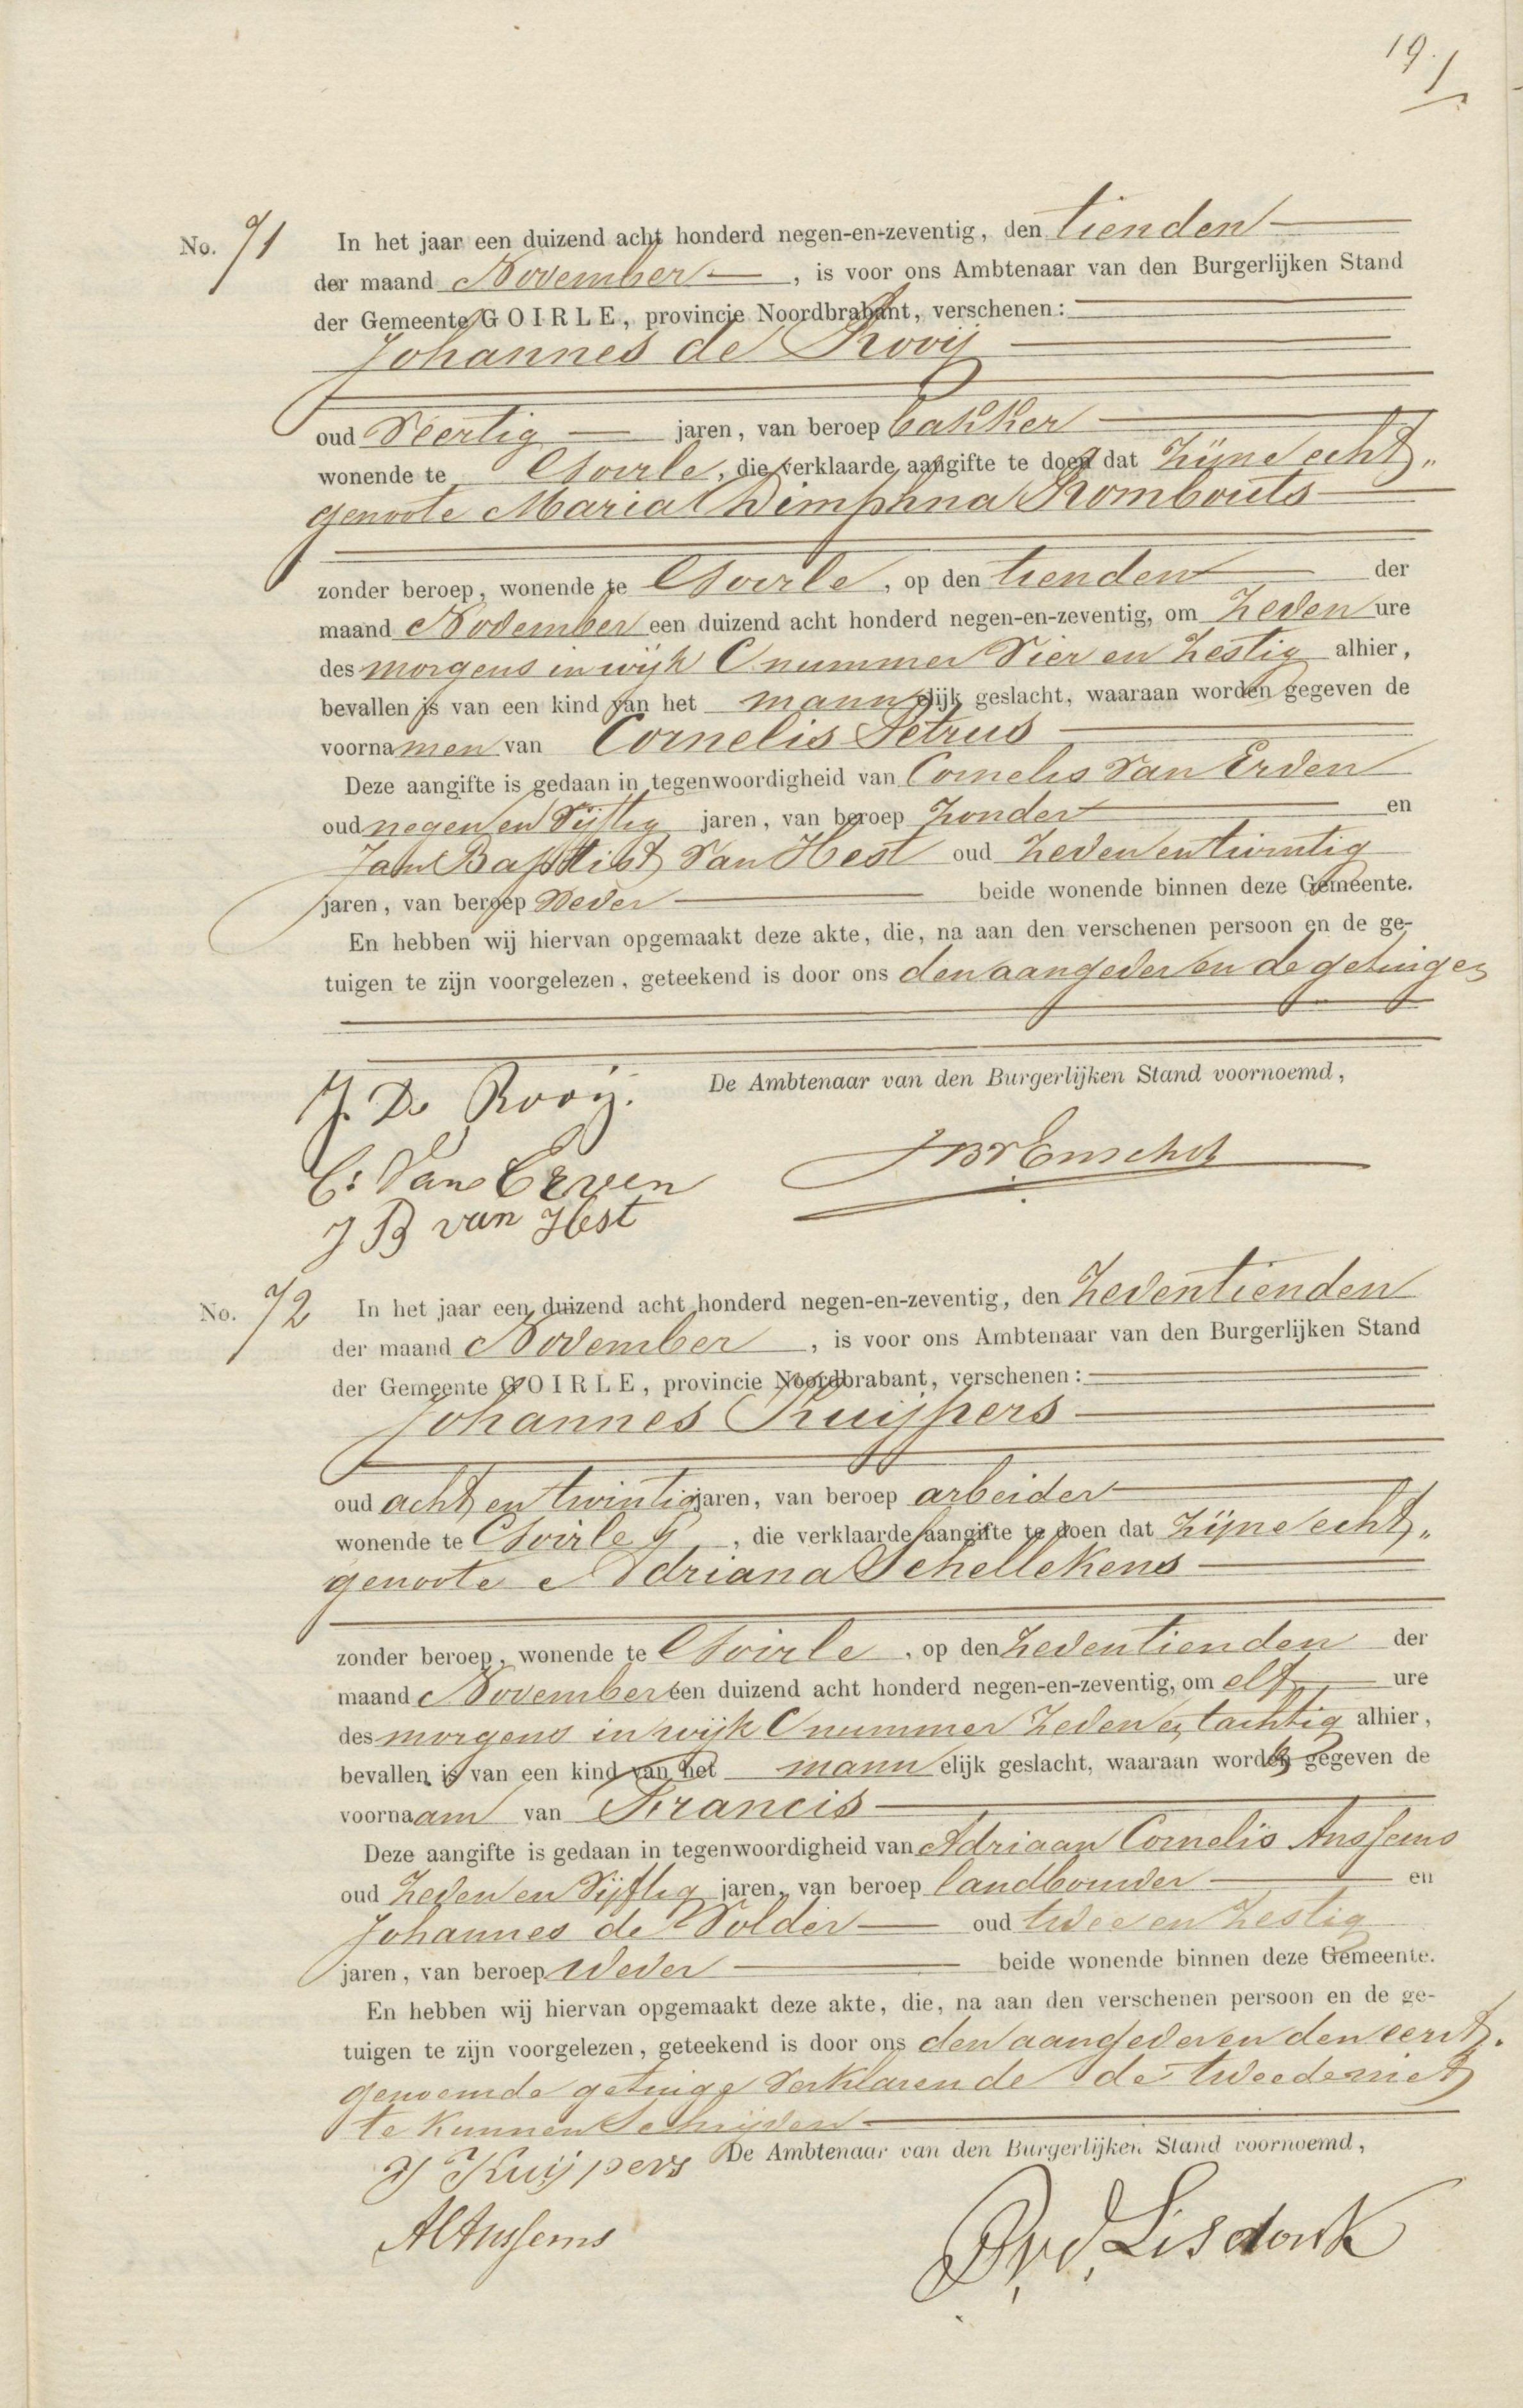 19.
No. 71 In het jaar een duizend acht honderd negen-en-zeventig, den tienden
der maand November, is voor ons Ambtenaar van den Burgerlijken Stand
der Gemeente GOIRLE, provincie Noordbrabant, verschenen:
Johannes de Rooij
oud Veertig jaren, van beroep bakker
wonende te Goirle, die verklaarde aangifte te doen dat zijne echt„
genoote Maria Dimphna Rombouts
zonder beroep, wonende te Goirle, op den tienden der
maand November een duizend acht honderd negen-en-zeventig, om zeven ure
des morgens in wijk C nummer Vier en zestig alhier,
bevallen is van een kind van het mannelijk geslacht, waaraan worden gegeven de
voornamen van Cornelis Petrus
Deze aangifte is gedaan in tegenwoordigheid van Cornelis van Erven
oud negen en vijftig jaren, van beroep zonder en
Jan Baptist van Hest oud zeven en twintig
jaren, van beroep Wever beide wonende binnen deze Gemeente.
En hebben wij hiervan opgemaakt deze akte, die, na aan den verschenen persoon en de ge-
tuigen te zijn voorgelezen, geteekend is door ons den aangever en de getuigen
De Ambtenaar van den Burgerlijken Stand voornoemd,
J. De Rooij.
C: Van Erven
J B van Hest
No. 72 In het jaar een duizend acht honderd negen-en-zeventig, den zeventienden
der maand November, is voor ons Ambtenaar van den Burgerlijken Stand
der Gemeente GOIRLE, provincie Noordbrabant, verschenen:
Johannes Kuijpers
oud acht en twintig jaren, van beroep arbeider
wonende te Goirle, die verklaarde aangifte te doen dat zijne echt„
genoote Adriana Schellekens
zonder beroep, wonende te Goirle, op den zeventienden der
maand November een duizend acht honderd negen-en-zeventig, om elf ure
des morgens in wijk C nummer zeven en tachtig alhier,
bevallen is van een kind van het mannelijk geslacht, waaraan worden gegeven de
voornaam van Francis
Deze aangifte is gedaan in tegenwoordigheid van Adriaan Cornelis Anssems
oud zeven en vijftig jaren, van beroep landbouwer en
Johannes de Volder oud twee en zestig
jaren, van beroep Wever beide wonende binnen deze Gemeente.
En hebben wij hiervan opgemaakt deze akte, die, na aan den verschenen persoon en de ge-
tuigen te zijn voorgelezen, geteekend is door ons den aangever en den eerst„
genoemde getuige verklarende de tweede niet
te kunnen schrijven
De Ambtenaar van den Burgerlijken Stand voornoemd,
J Kuijpers
AC Anssems
Lisdonk